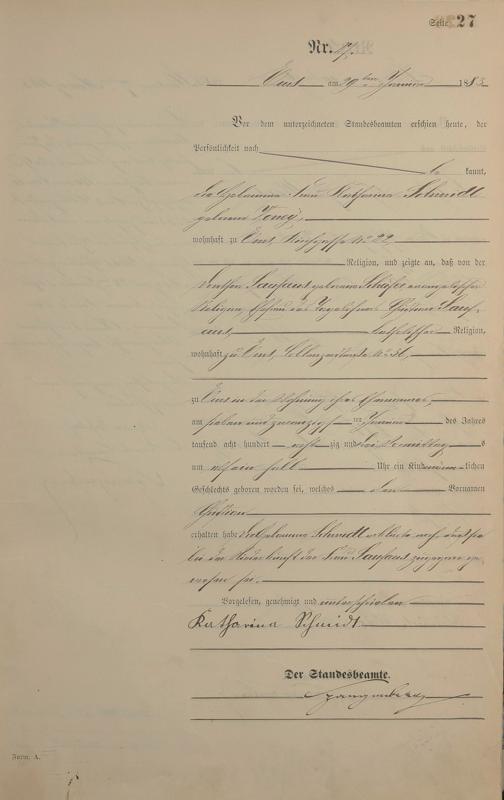 Seite 27
Nr. 27.
Ems am 29ten Januar 1883
Vor dem unterzeichneten Standesbeamten erschien heute, der
Persönlichkeit nach
be kannt,
die Hebamme Frau Katharina Schmidt
geborene
wohnhaft zu Ems, Kirchgasse No 22,
Religion, und zeigte an, daß von der
geborene Schäfer evangelischer
Religion, Ehefrau des Tagelöhners Christian
katholischer Religion,
wohnhaft zu Ems, Coblenzerstraße No
zu Ems in der Wohnung ihres Ehemannes,
am sieben und zwanzigsten Januar des Jahres
tausend acht hundert acht zig und drei Vormittags
um ein halb Uhr ein Kind männlichen
Geschlechts geboren worden sei, welches den Vornamen
Christian
erhalten habe. Die Hebamme Schmidt erklärte noch, daß sie
bei der Niederkunft der Frau zugegen ge-
wesen sei.
Vorgelesen, genehmigt und unterschrieben
Katharina Schmidt
Der Standesbeamte.
Spangenberg
Form. A.